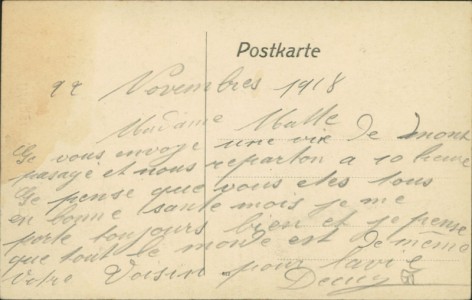 Postkarte
22 Novembres 1918
Madame Malle
Je vous envoye une vix de mont
pasage et nous reparton a 10 heure
Je pense que vous etes tous
en bonne sante mois je me
porte toujours bien et je pense
que tout le monde est de meme
Votre Voisin pour la vie